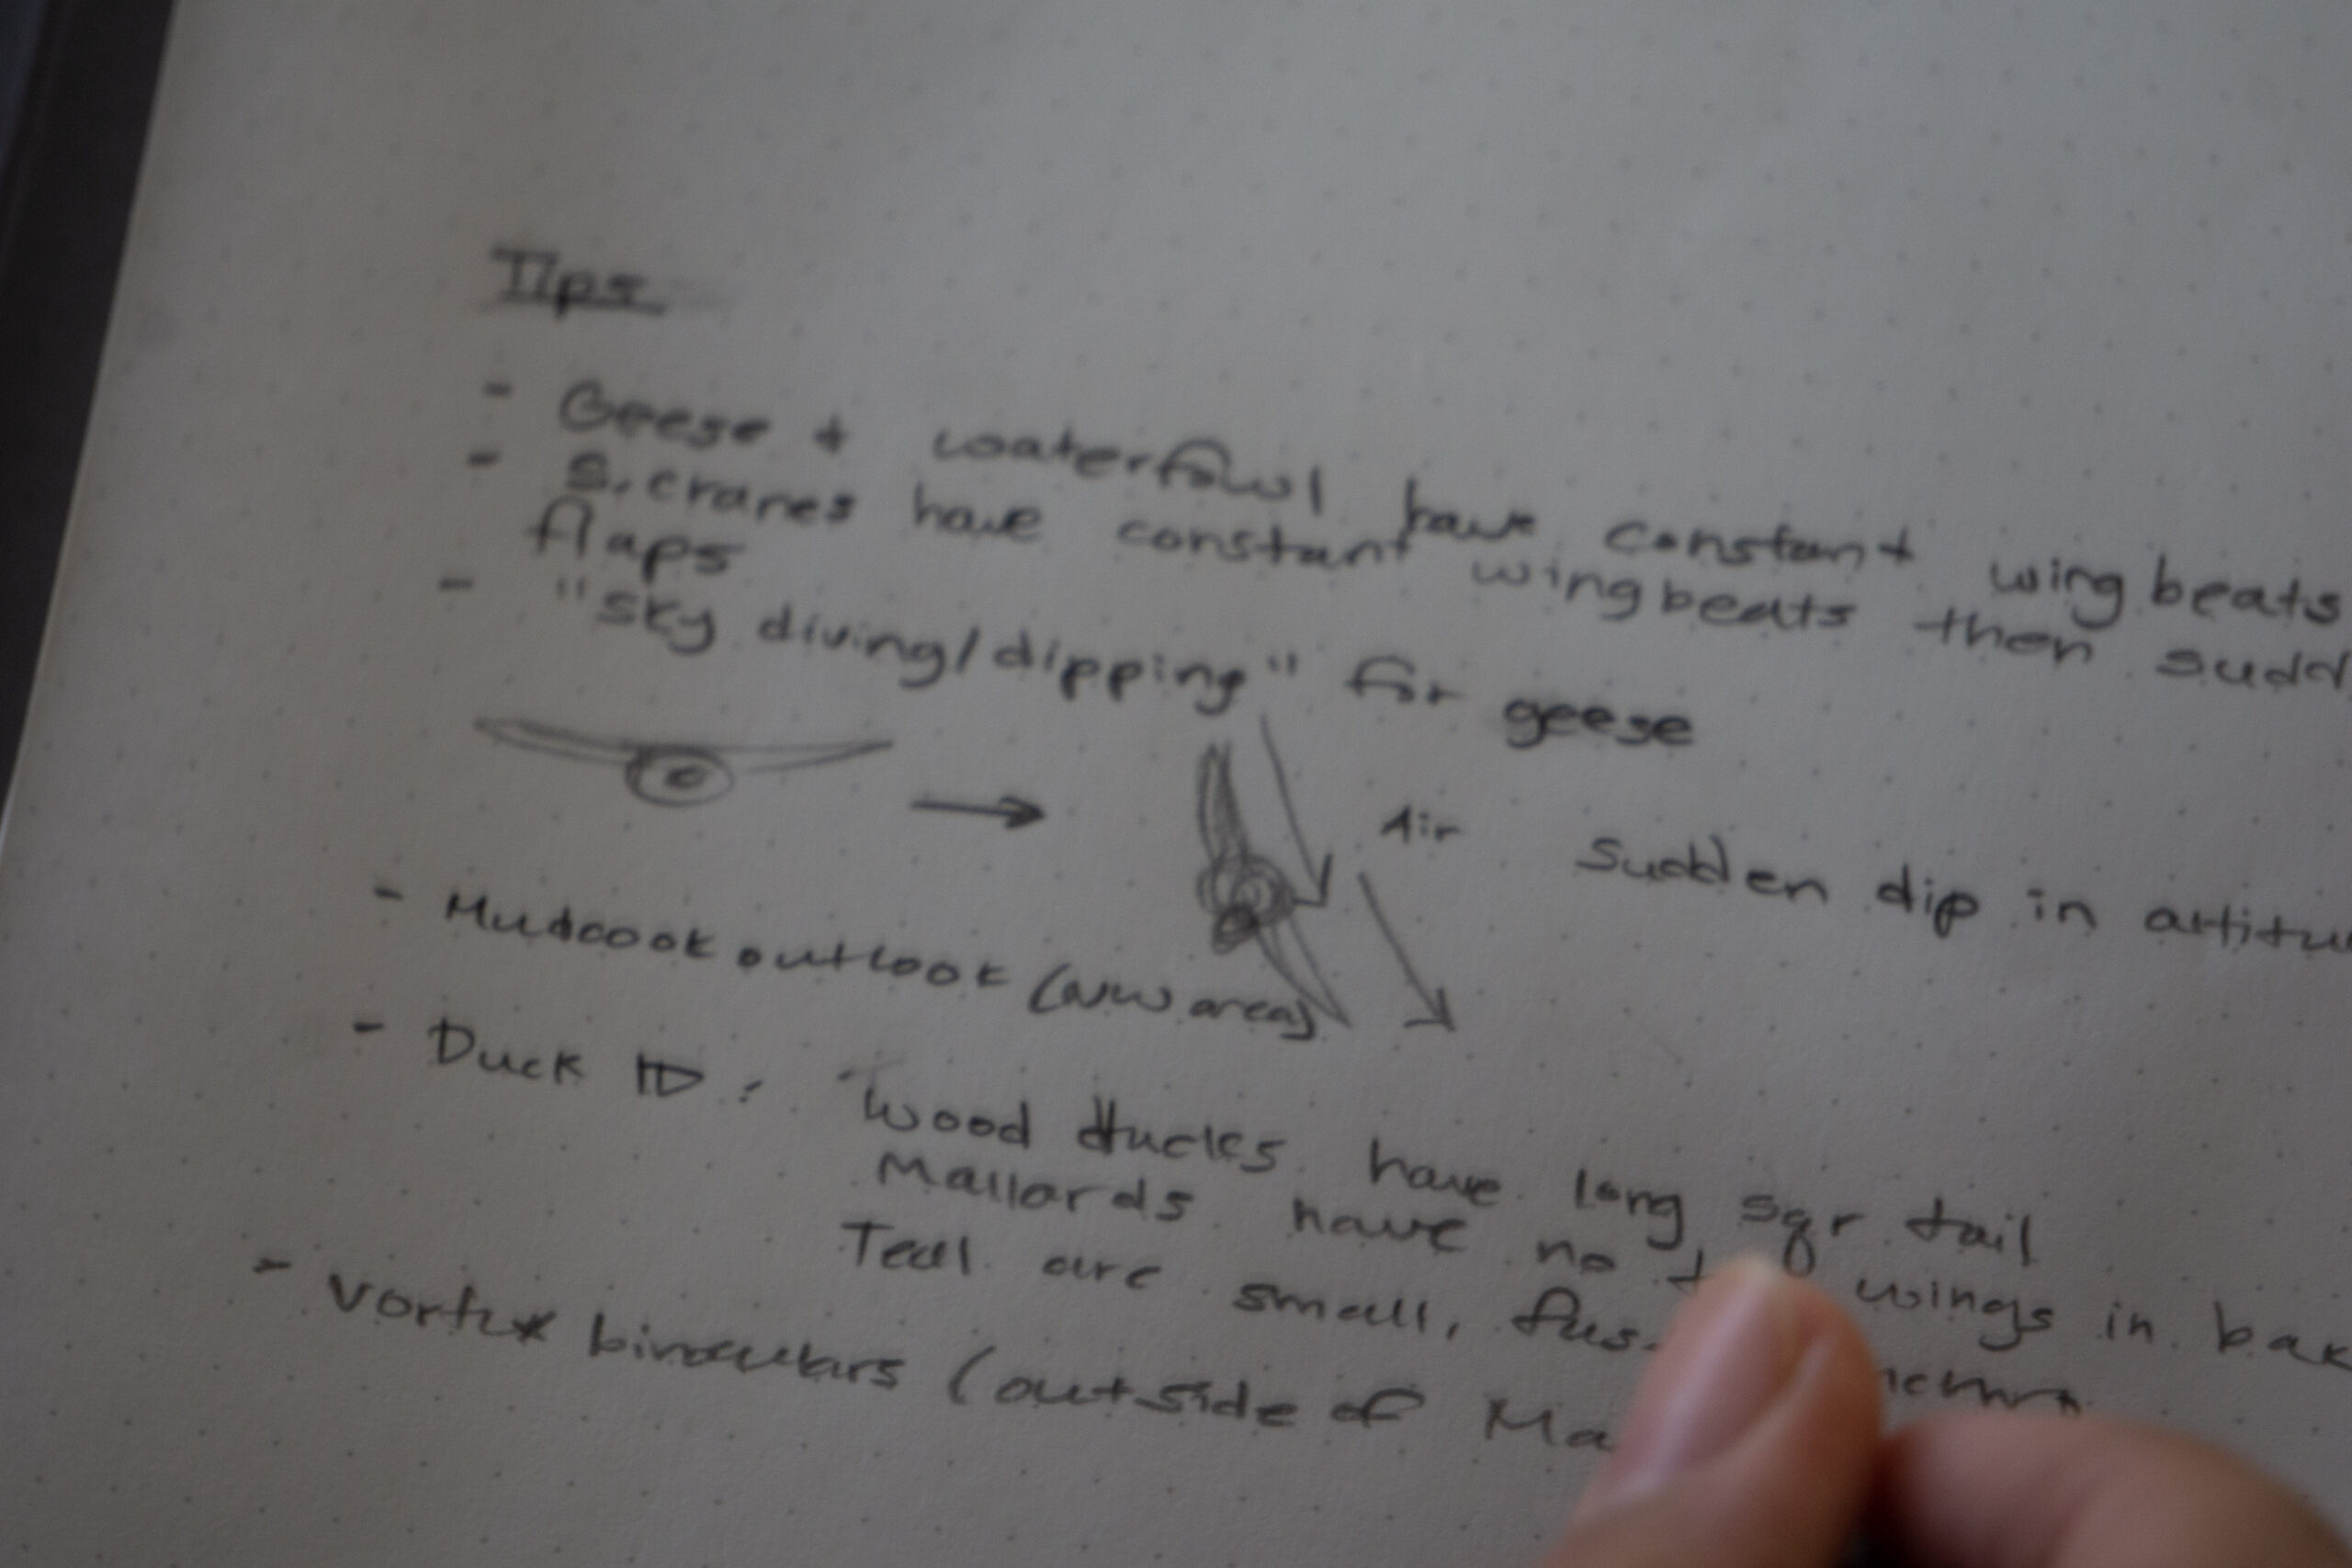 Tips
- Geese + waterfowl have constant wing beats
- S. cranes have constant wing beats then sudd
flaps
- "sky diving/dipping" for geese
Air
Sudden dip in altitu
- outlook (NW area)
- Duck ID: Wood ducks have long sqr tail
Mallards have no wings in
Teal are small,
- Vortex binoculars (outside of